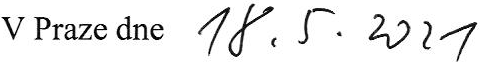 V Praze dne 18. 5. 2021